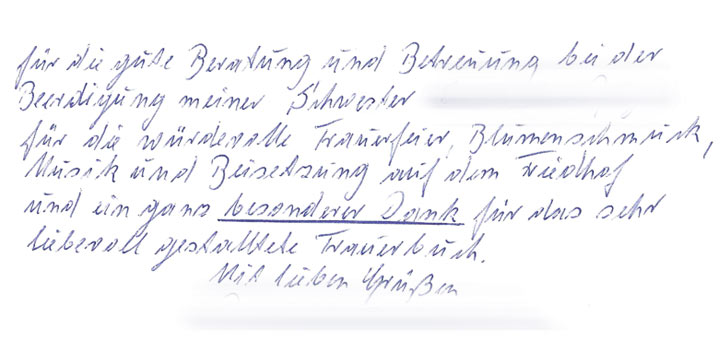 für die gute Beratung und Betreuung bei der
Beerdigung meiner Schwester
für die würdevolle Trauerfeier, Blumenschmuck,
Musik und Beisetzung auf dem Friedhof
und ein ganz besonderer Dank für das sehr
liebevoll gestalltete Trauerbuch.
Mit lieben Grüßen